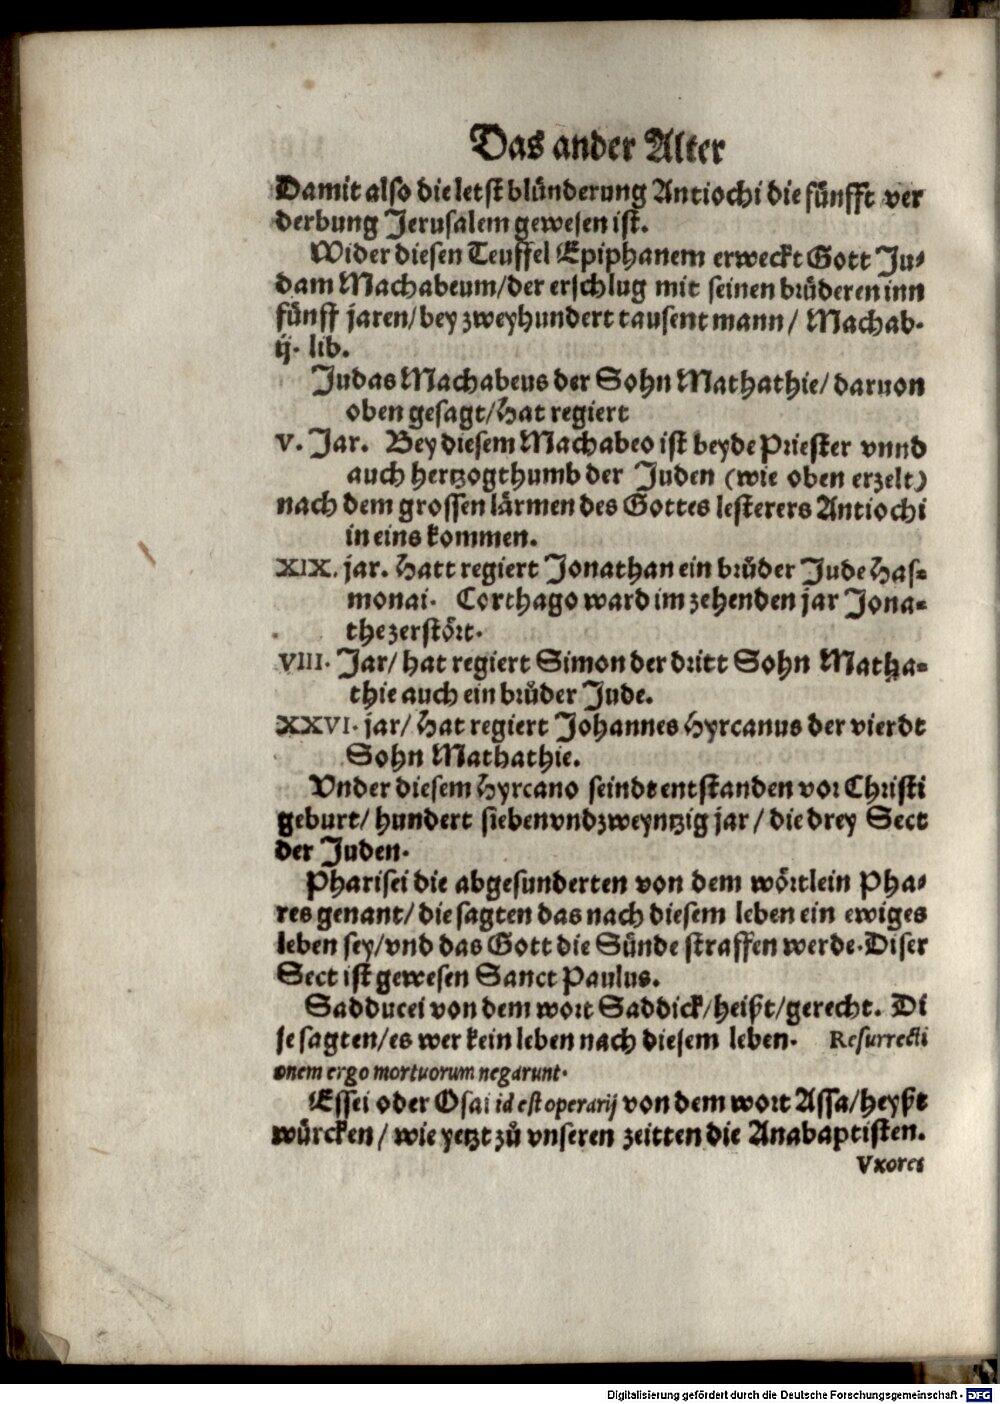 Das ander Alter
Damit also die letst blünderung Antiochi die fünfft ver
derbung Jerusalem gewesen ist.
Wider diesen Teuffel Epiphanem erweckt Gott Ju⸗
dam Machabeum/der erschlug mit seinen brůderen inn
fünff jaren/bey zweyhundert tausent mann/ Machab.
ij. lib.
Judas Machabeus der Sohn Mathathie/daruon
oben gesagt/hat regiert
V. Jar. Bey diesem Machabeo ist beyde Priester vnnd
auch hertzogthumb der Juden (wie oben erzelt)
nach dem grossen lärmen des Gottes lesterers Antiochi
in eins kommen.
XIX. jar. Hatt regiert Jonathan ein brůder Jude Has⸗
monai. Corthago ward im zehenden jar Jona⸗
the zerstört.
VIII. Jar/ hat regiert Simon der dritt Sohn Matha⸗
thie auch ein brůder Jude.
XXVI. jar/ Hat regiert Johannes Hyrcanus der vierdt
Sohn Mathathie.
Vnder diesem Hyrcano seindt entstanden vor Christi
geburt/ hundert siebenvndzweyntzig jar/ die drey Sect
der Juden.
Pharisei die abgesunderten von dem wörtlein Pha⸗
res genant/ die sagten das nach diesem leben ein ewiges
leben sey/vnd das Gott die Sünde straffen werde. Diser
Sect ist gewesen Sanct Paulus.
Sadducei von dem wort Saddick/heißt/gerecht. Di
se sagten/es wer kein leben nach diesem leben. Resurrecti
onem ergo mortuorum negarunt.
Essei oder Osai id est operarij von dem wort Assa/heyßt
würcken/ wie yetzt zů vnseren zeitten die Anabaptisten.
Vxores
Digitalisierung gefördert durch die Deutsche Forschungsgemeinschaft - DFG